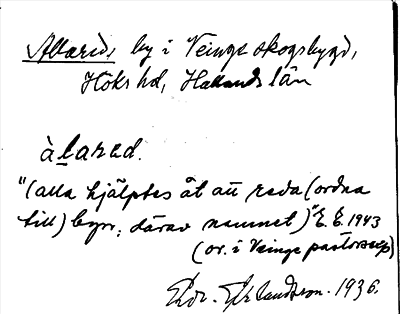 Allared, by i Veinge skogsbygd,
Höks hd, Hallands län
àlared.
"(alla hjälptes åt att reda (ordna
till) byn, därav namnet)" E. E. 1943
(or. i Veinge pastorsexp)
1936.